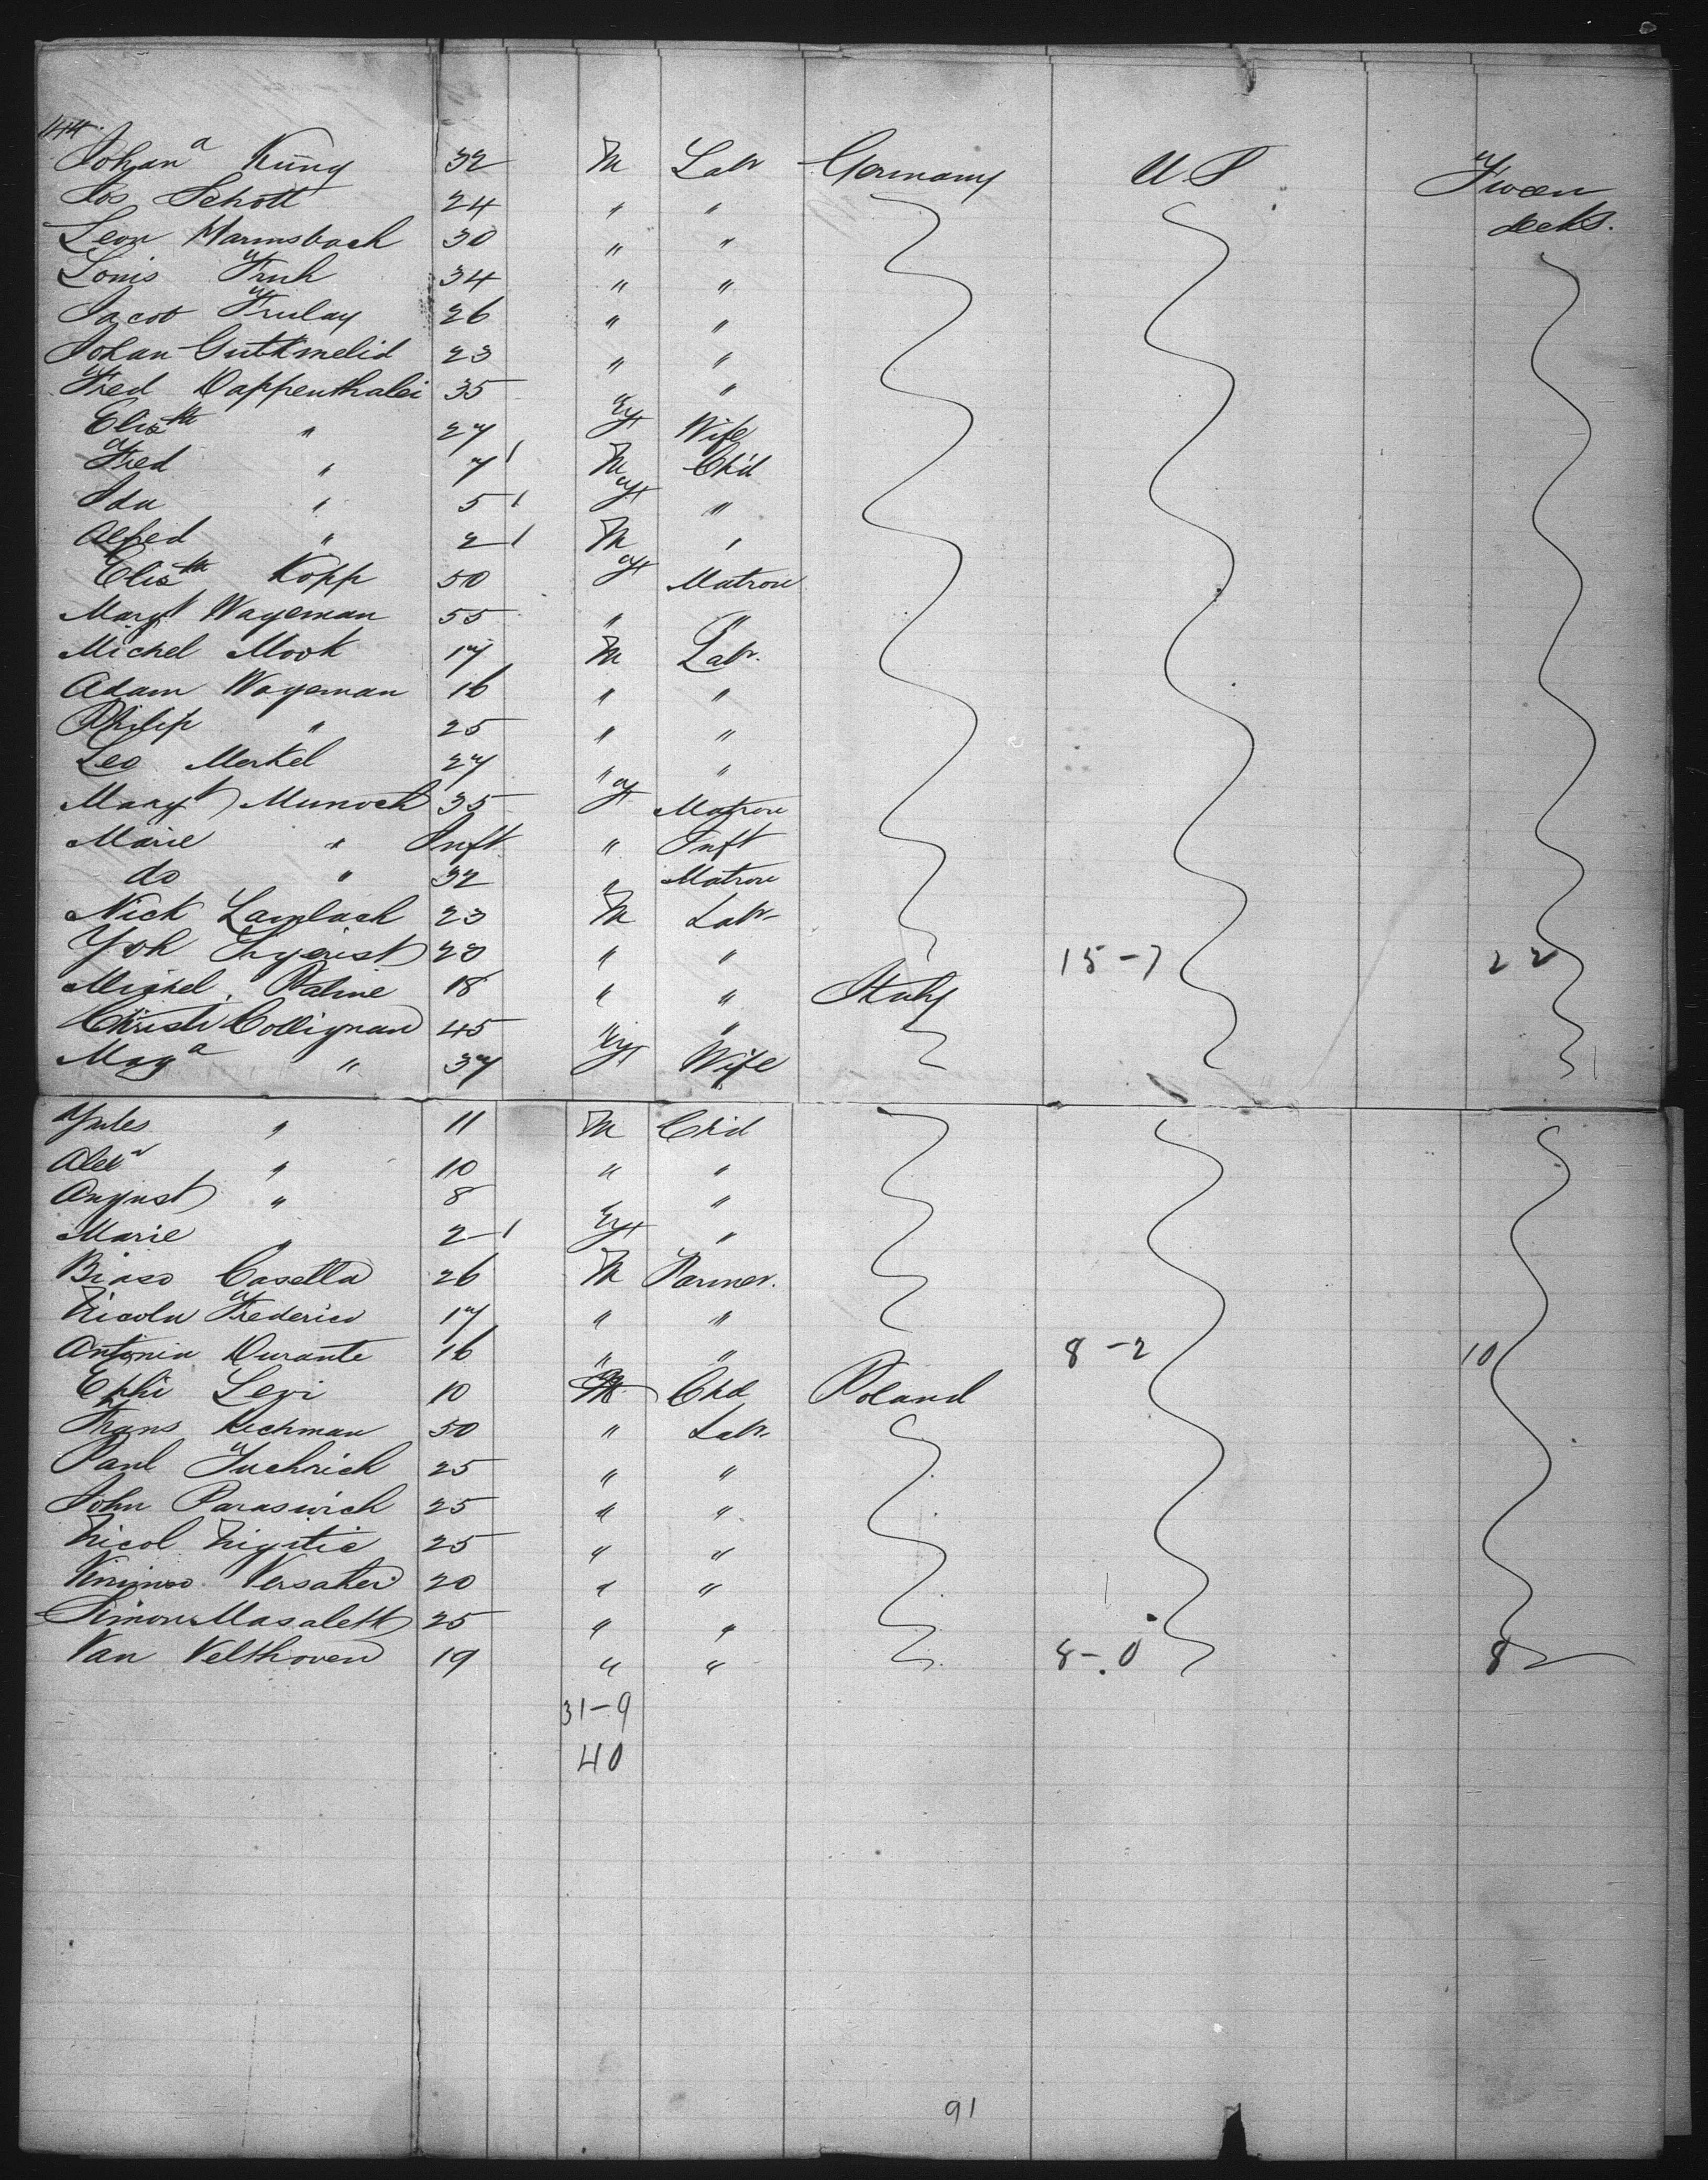 144.
Johanª Küng 32 M Labr Germany U.S. Tween
Jos Schott 24 " " decks.
Leon Harmsbach 30 " "
Louis Fruh 34 " "
Jacob Frulay 26 " "
Johan Gutkmelid 23 " "
Fred Dappenthalei 35 " "
Elisth " 27 Fy Wife
Fred " 7 1 M Ch'd
Ida " 5 1 Fy "
Alfred " 2 1 M "
Elisth Kopp 50 Fy Matron
Margt Wageman 55 " "
Michel Mook 17 M Labr.
Adam Wageman 16 " "
Philip " 25 " "
Leo Merkel 27 " "
Margt Munoch 35 Fy Matron
Marie " Inft " Inft
do " 32 " Matron
Nick Lamlach 23 M Labr
Yoh Sigerist 23 " " 15-7 22
Michel Paline 18 " " Italy
Christi Collignan 45 " "
Magª " 37 Fy Wife
Jules " 11 M Chd
Alexr " 10 " "
August " 8 " "
Marie " 2 1 Fy "
Biaso Casella 26 M Farmer.
Nicola Frederico 17 " "
Antonia Durante 16 " " 8-2 10
Ephi Levi 10 M Chd Poland
Frans Kechman 50 " Labr
Paul Juchrich 25 " "
John Paraswich 25 " "
Nicol Nigitic 25 " "
Versaker 20 " "
Simon Masalett 25 " "
Van Velthoven 19 " " 8-0 8
31-9
40
91